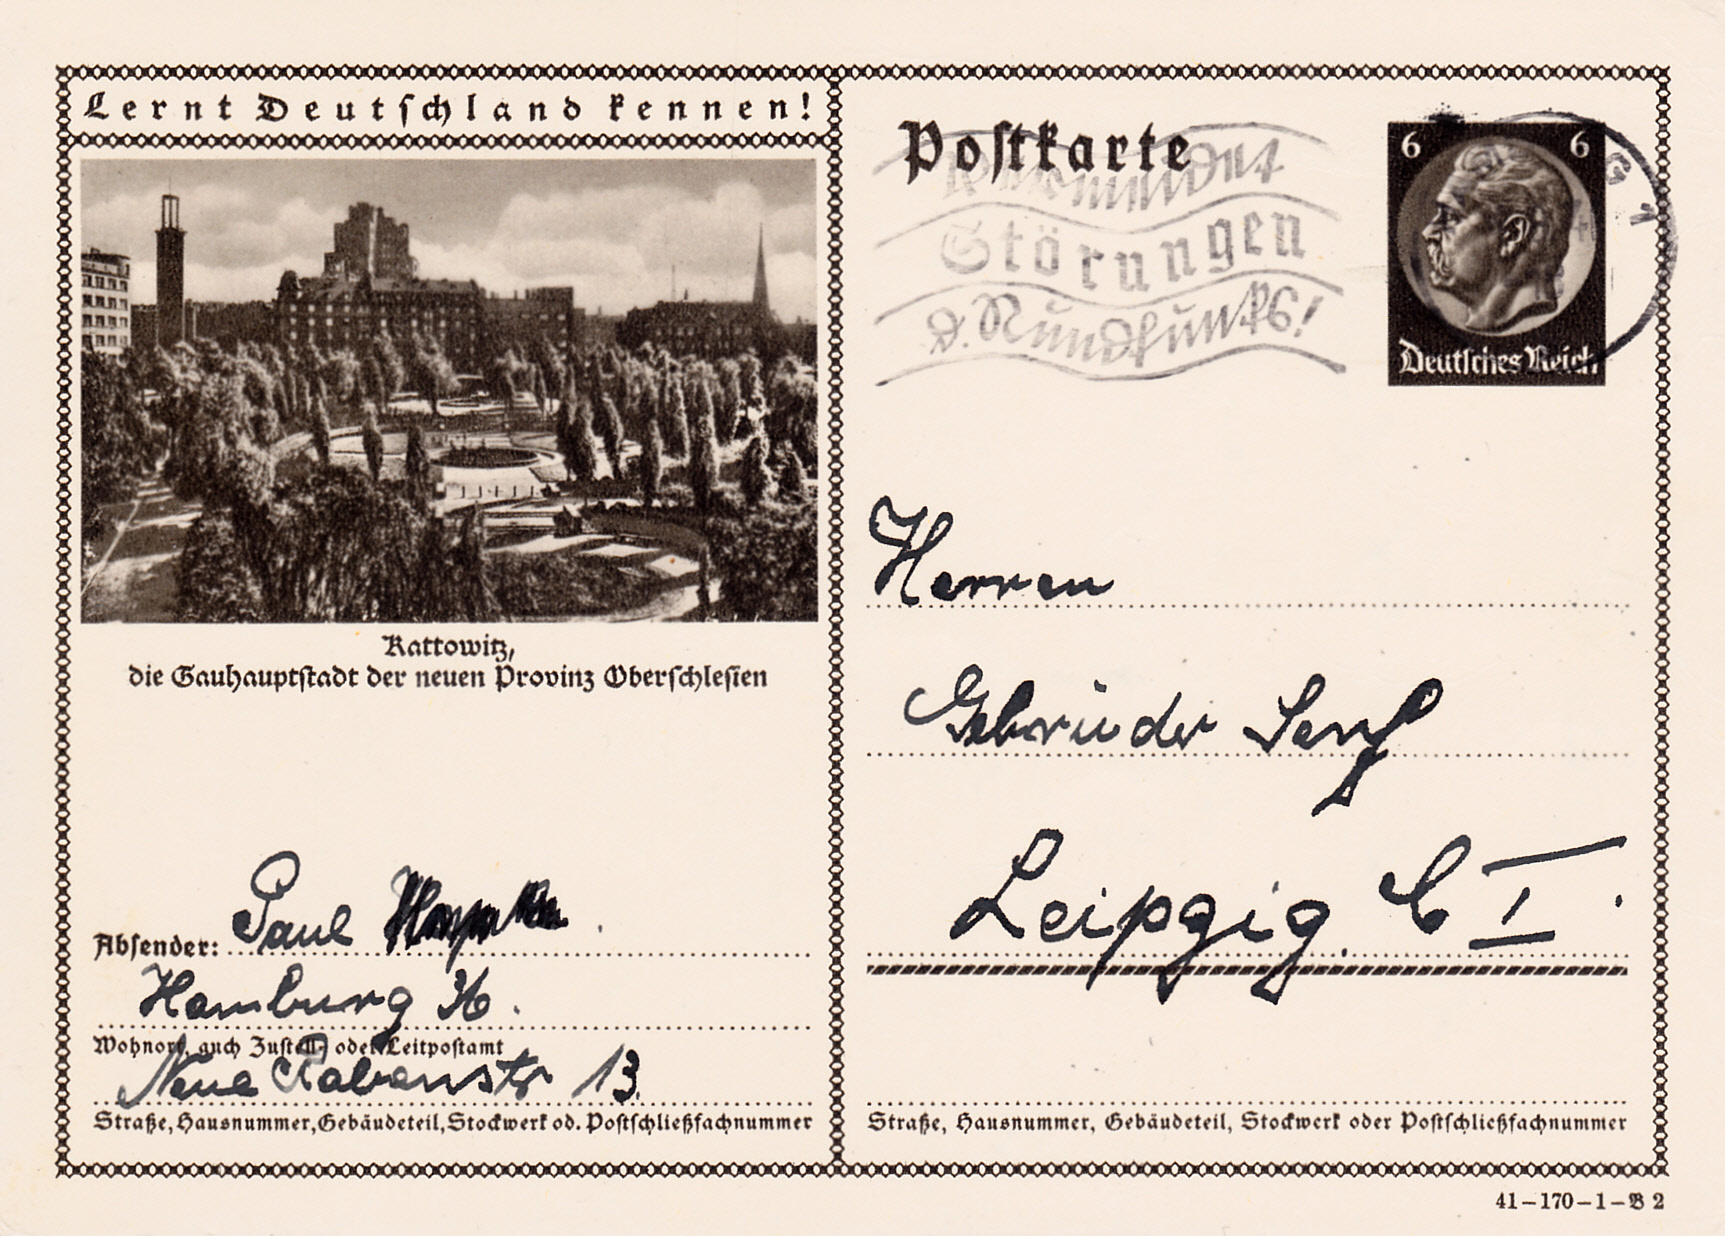 Lernt Deutschland kennen!
Kattowitz,
die Gauhauptstadt der neuen Provinz Oberschlesien
Absender: Paul
Hamburg 36.
Wohnort, auch Zustell- oder Leitpostamt
Neue Rabenstr 13.
Straße, Hausnummer, Gebäudeteil, Stockwerk od. Postschließfachnummer
Postkarte
Vermeidet
Störungen
d. Rundfunks!
6 6
Deutsches Reich
Herren
Gebrüder Senf
Leipzig. C I.
Straße, Hausnummer, Gebäudeteil, Stockwerk oder Postschließfachnummer
41-170-1-B 2